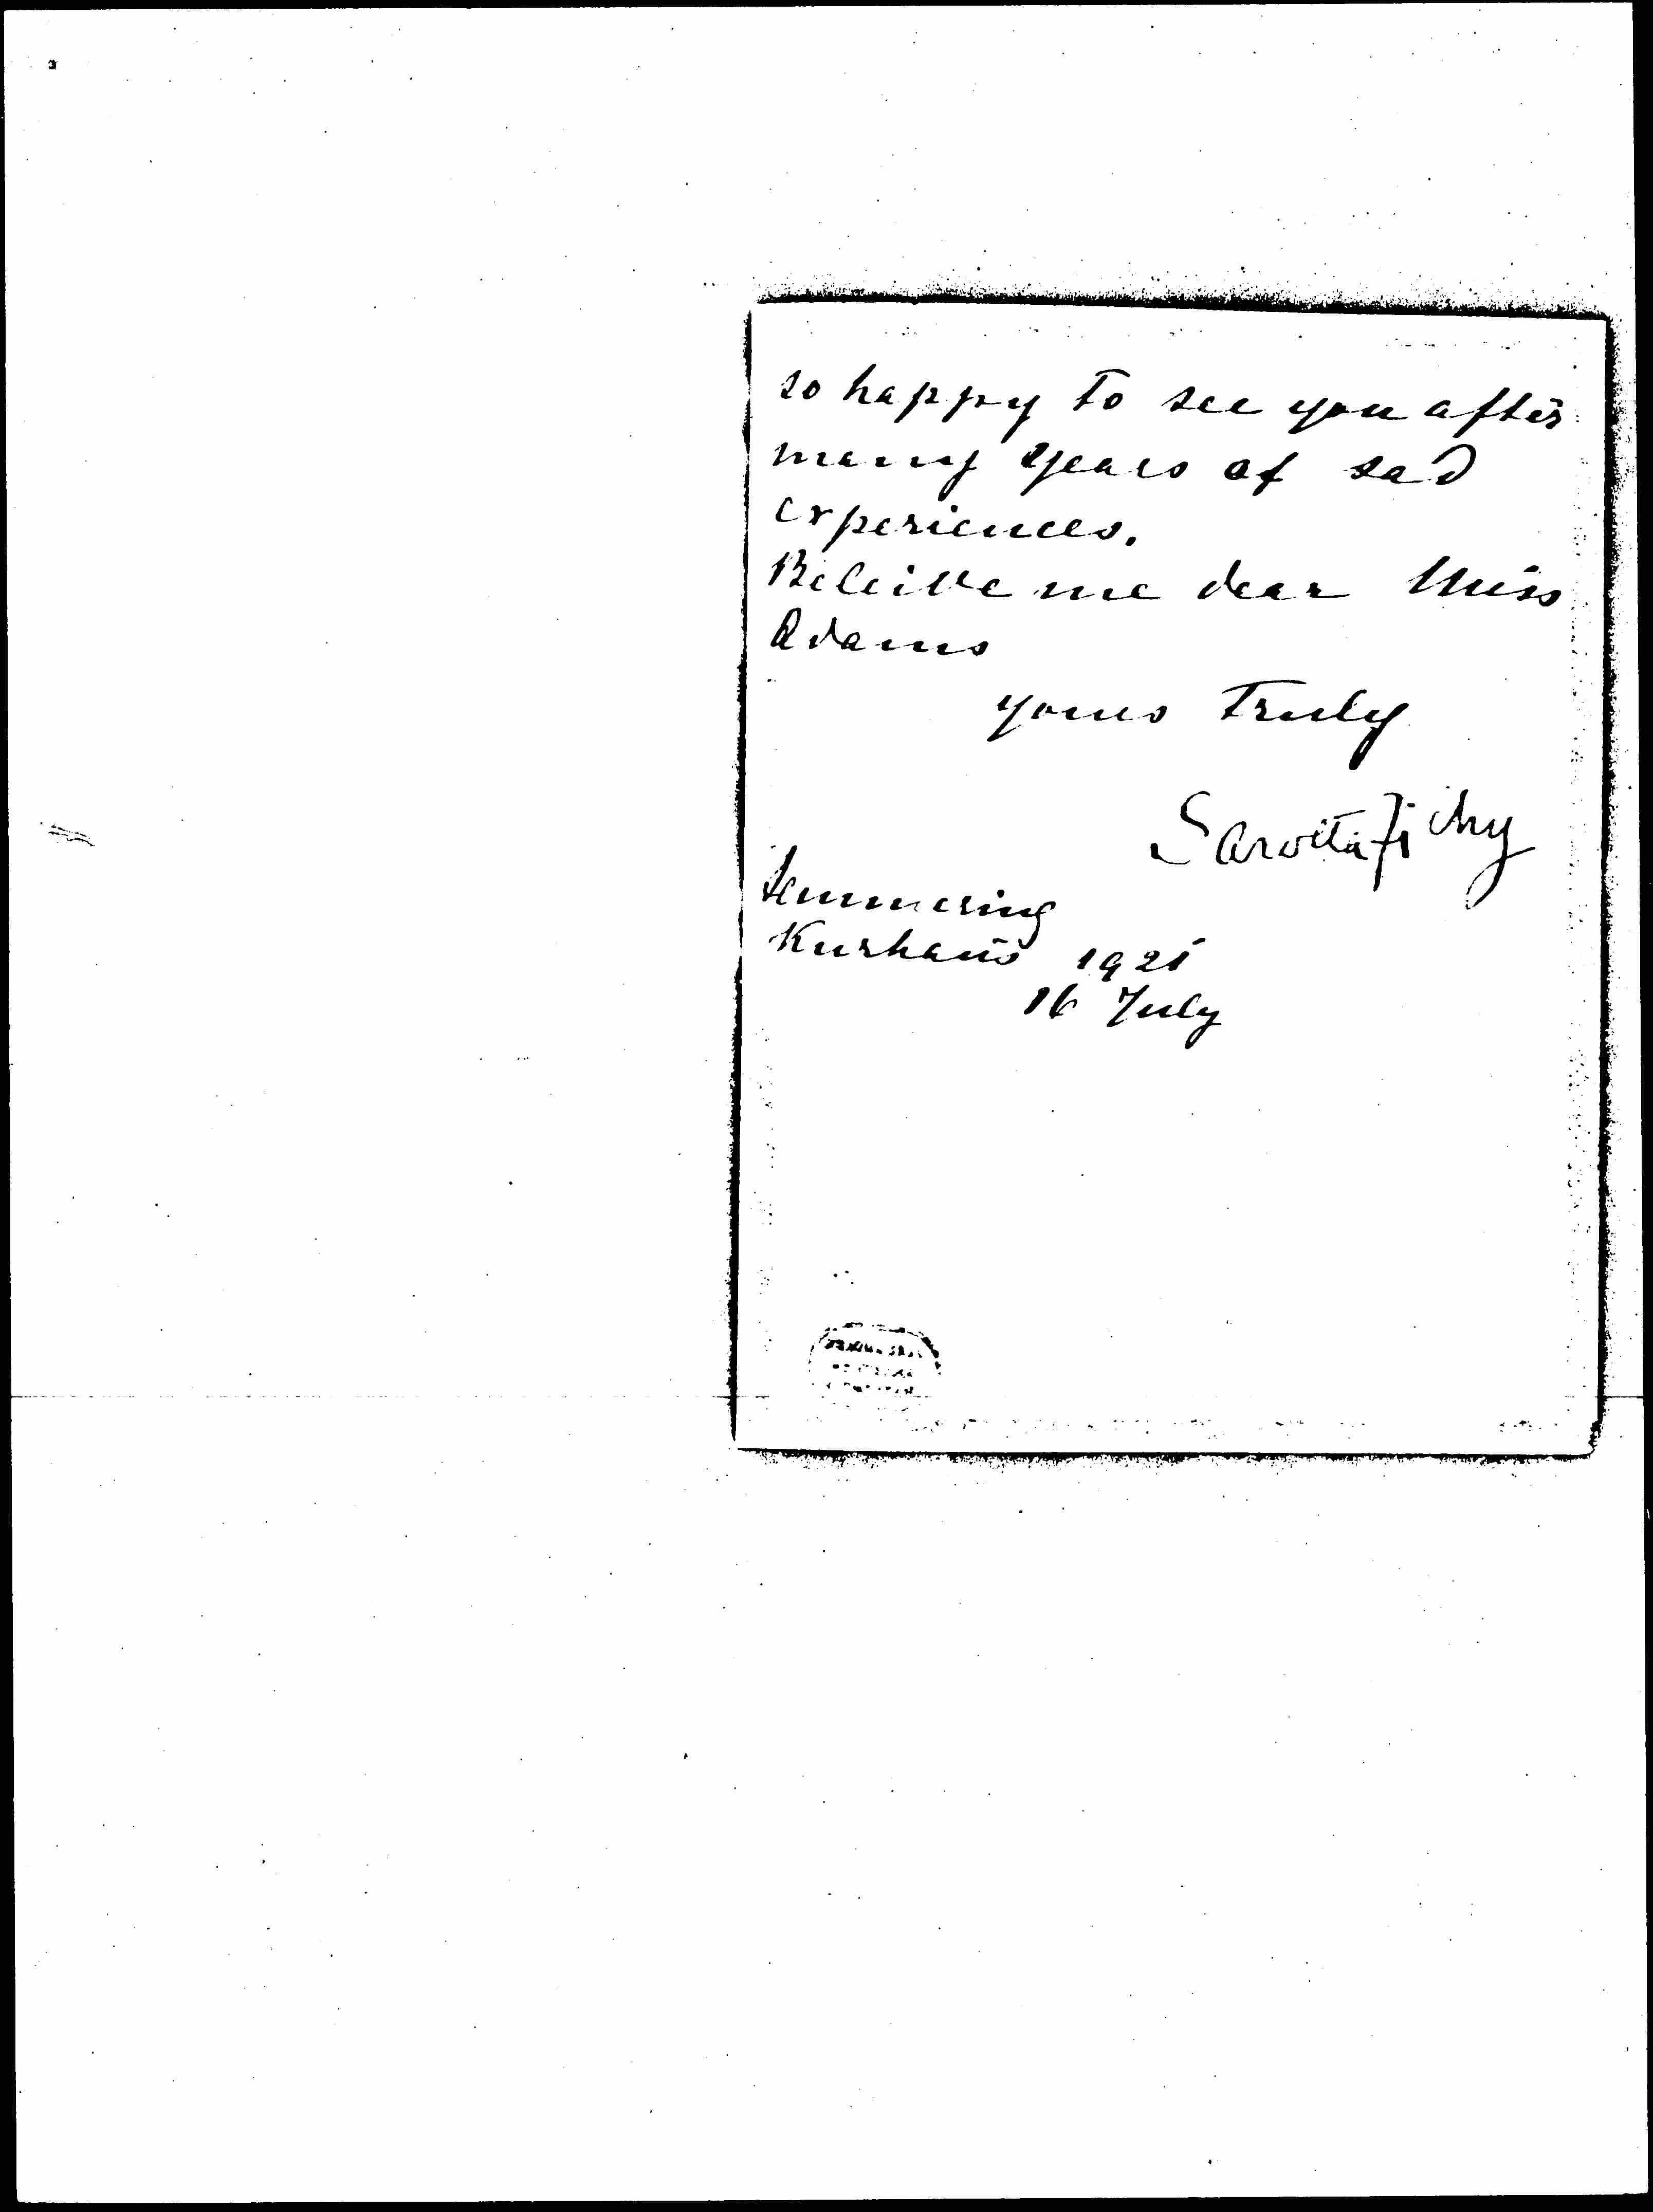 so happy to see you after
many years of sad
experiences.
Beleive me dear Miss
Adams
yours truly
Sarolta Zichy
Semmering
Kurhaus 1921
16 July